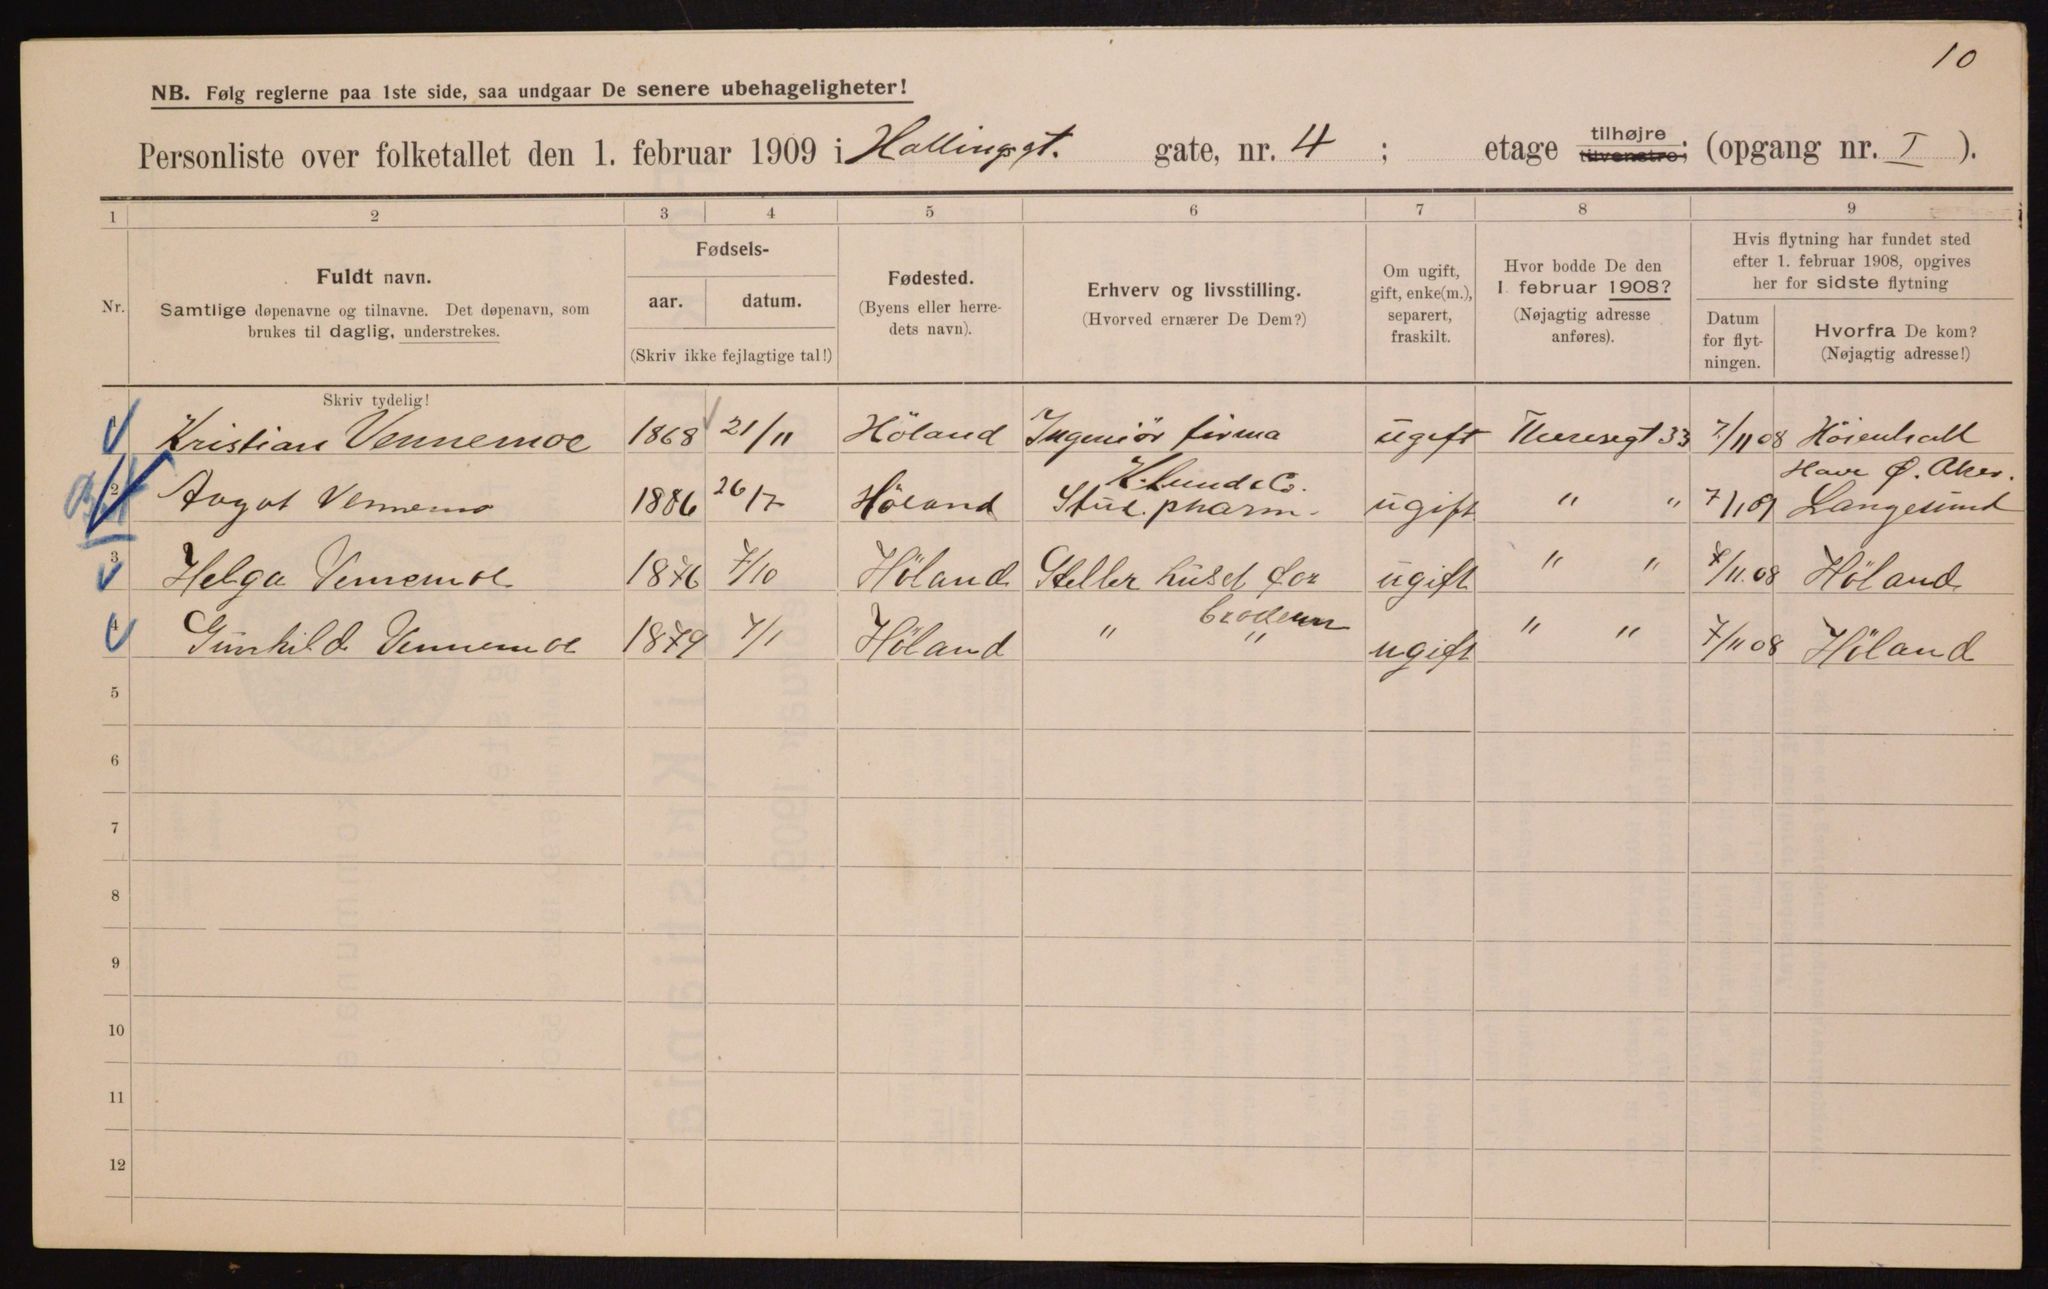 10
NB. Følg reglerne paa 1ste side, saa undgaar De senere ubehageligheter!
Personliste over folketallet den 1. februar 1909 i Hallingsgt. gate, nr. 4 ; etage tilhøjre tilvenstre; (opgang nr. I ).
1 2 3 4 5 6 7 8 9
Nr.
Fuldt navn.
Samtlige døpenavne og tilnavne. Det døpenavn, som
brukes til daglig, understrekes.
Skriv tydelig!
Fødsels-
aar. datum.
(Skriv ikke fejlagtige tal!)
Fødested.
(Byens eller herre-
dets navn).
Erhverv og livsstilling.
(Hvorved ernærer De Dem?)
Om ugift,
gift, enke(m.),
separert,
fraskilt.
Hvor bodde De den
1. februar 1908?
(Nøjagtig adresse
anføres).
Hvis flytning har fundet sted
efter 1. februar 1908, opgives
her for sidste flytning
Datum
for flyt-
ningen.
Hvorfra De kom?
(Nøjagtig adresse!)
Kristian Vennemoe 1868 21/11 Höland Ingeniör firma K. Lund & Co. ugift Theresegt 33 7/11 08 Höienhall Have Ø. Aker.
2 Aagot Vennemo 1886 26/7 Höland Stud. pharm. ugift " " 7/1 09 Langesund
3 Helga Vennemoe 1876 7/10 Höland Steller huset for broderen ugift " " 7/11.08 Höland
4 Gunhild Vennemoe 1879 7/1 Höland " " ugift " " 7/11 08 Höland
5
6
7
8
9
10
11
12